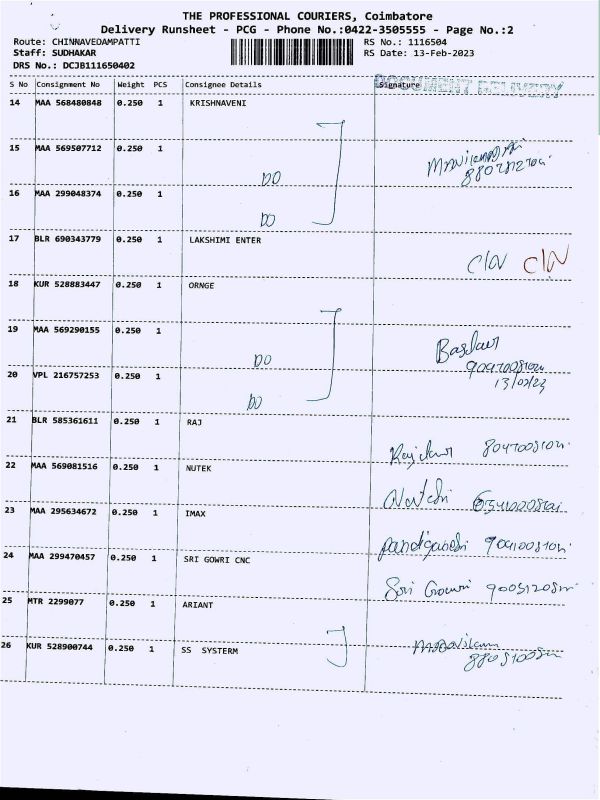 THE PROFESSIONAL COURIERS, Coimbatore
Delivery Runsheet - PCG - Phone No.:0422-3505555 - Page No.:2
Route: CHINNAVEDAMPATTI RS No.: 1116504
Staff: SUDHAKAR RS Date: 13-Feb-2023
DRS No.: DCJB111650402
S No Consignment No Weight PCS Consignee Details Signature
DOCUMENT DELIVERY
14 MAA 568480848 0.250 1 KRISHNAVENI
15 MAA 569507712 0.250 1
DO
16 MAA 299048374 0.250 1
DO
17 BLR 690343779 0.250 1 LAKSHIMI ENTER
C/N C/N
18 KUR 528883447 0.250 1 ORNGE
19 MAA 569290155 0.250 1
DO
20 VPL 216757253 0.250 1
13/02/23
DO
21 BLR 585361611 0.250 1 RAJ
22 MAA 569081516 0.250 1 NUTEK
23 MAA 295634672 0.250 1 IMAX
24 MAA 299470457 0.250 1 SRI GOWRI CNC
Sri Gowri
25 MTR 2299077 0.250 1 ARIANT
26 KUR 528900744 0.250 1 SS SYSTERM